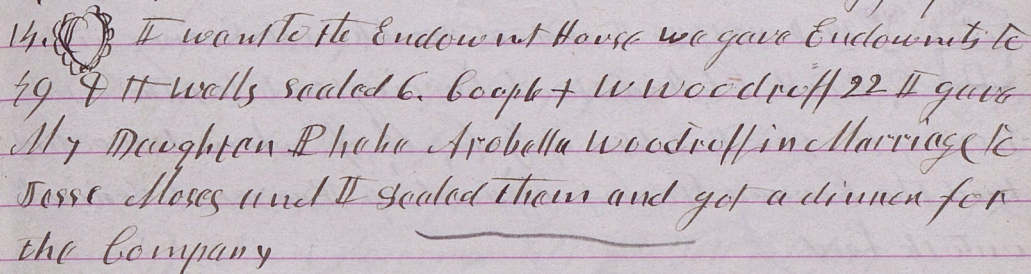 14. I went to the Endowmt House we gave Endowmts to
49 & H Wells sealed 6. Couple + W Woodruff 22 I gave
My Daughter Phebe Arabella Woodruff in Marriage to
Jesse Moses and I Sealed them and got a dinner for
the Company